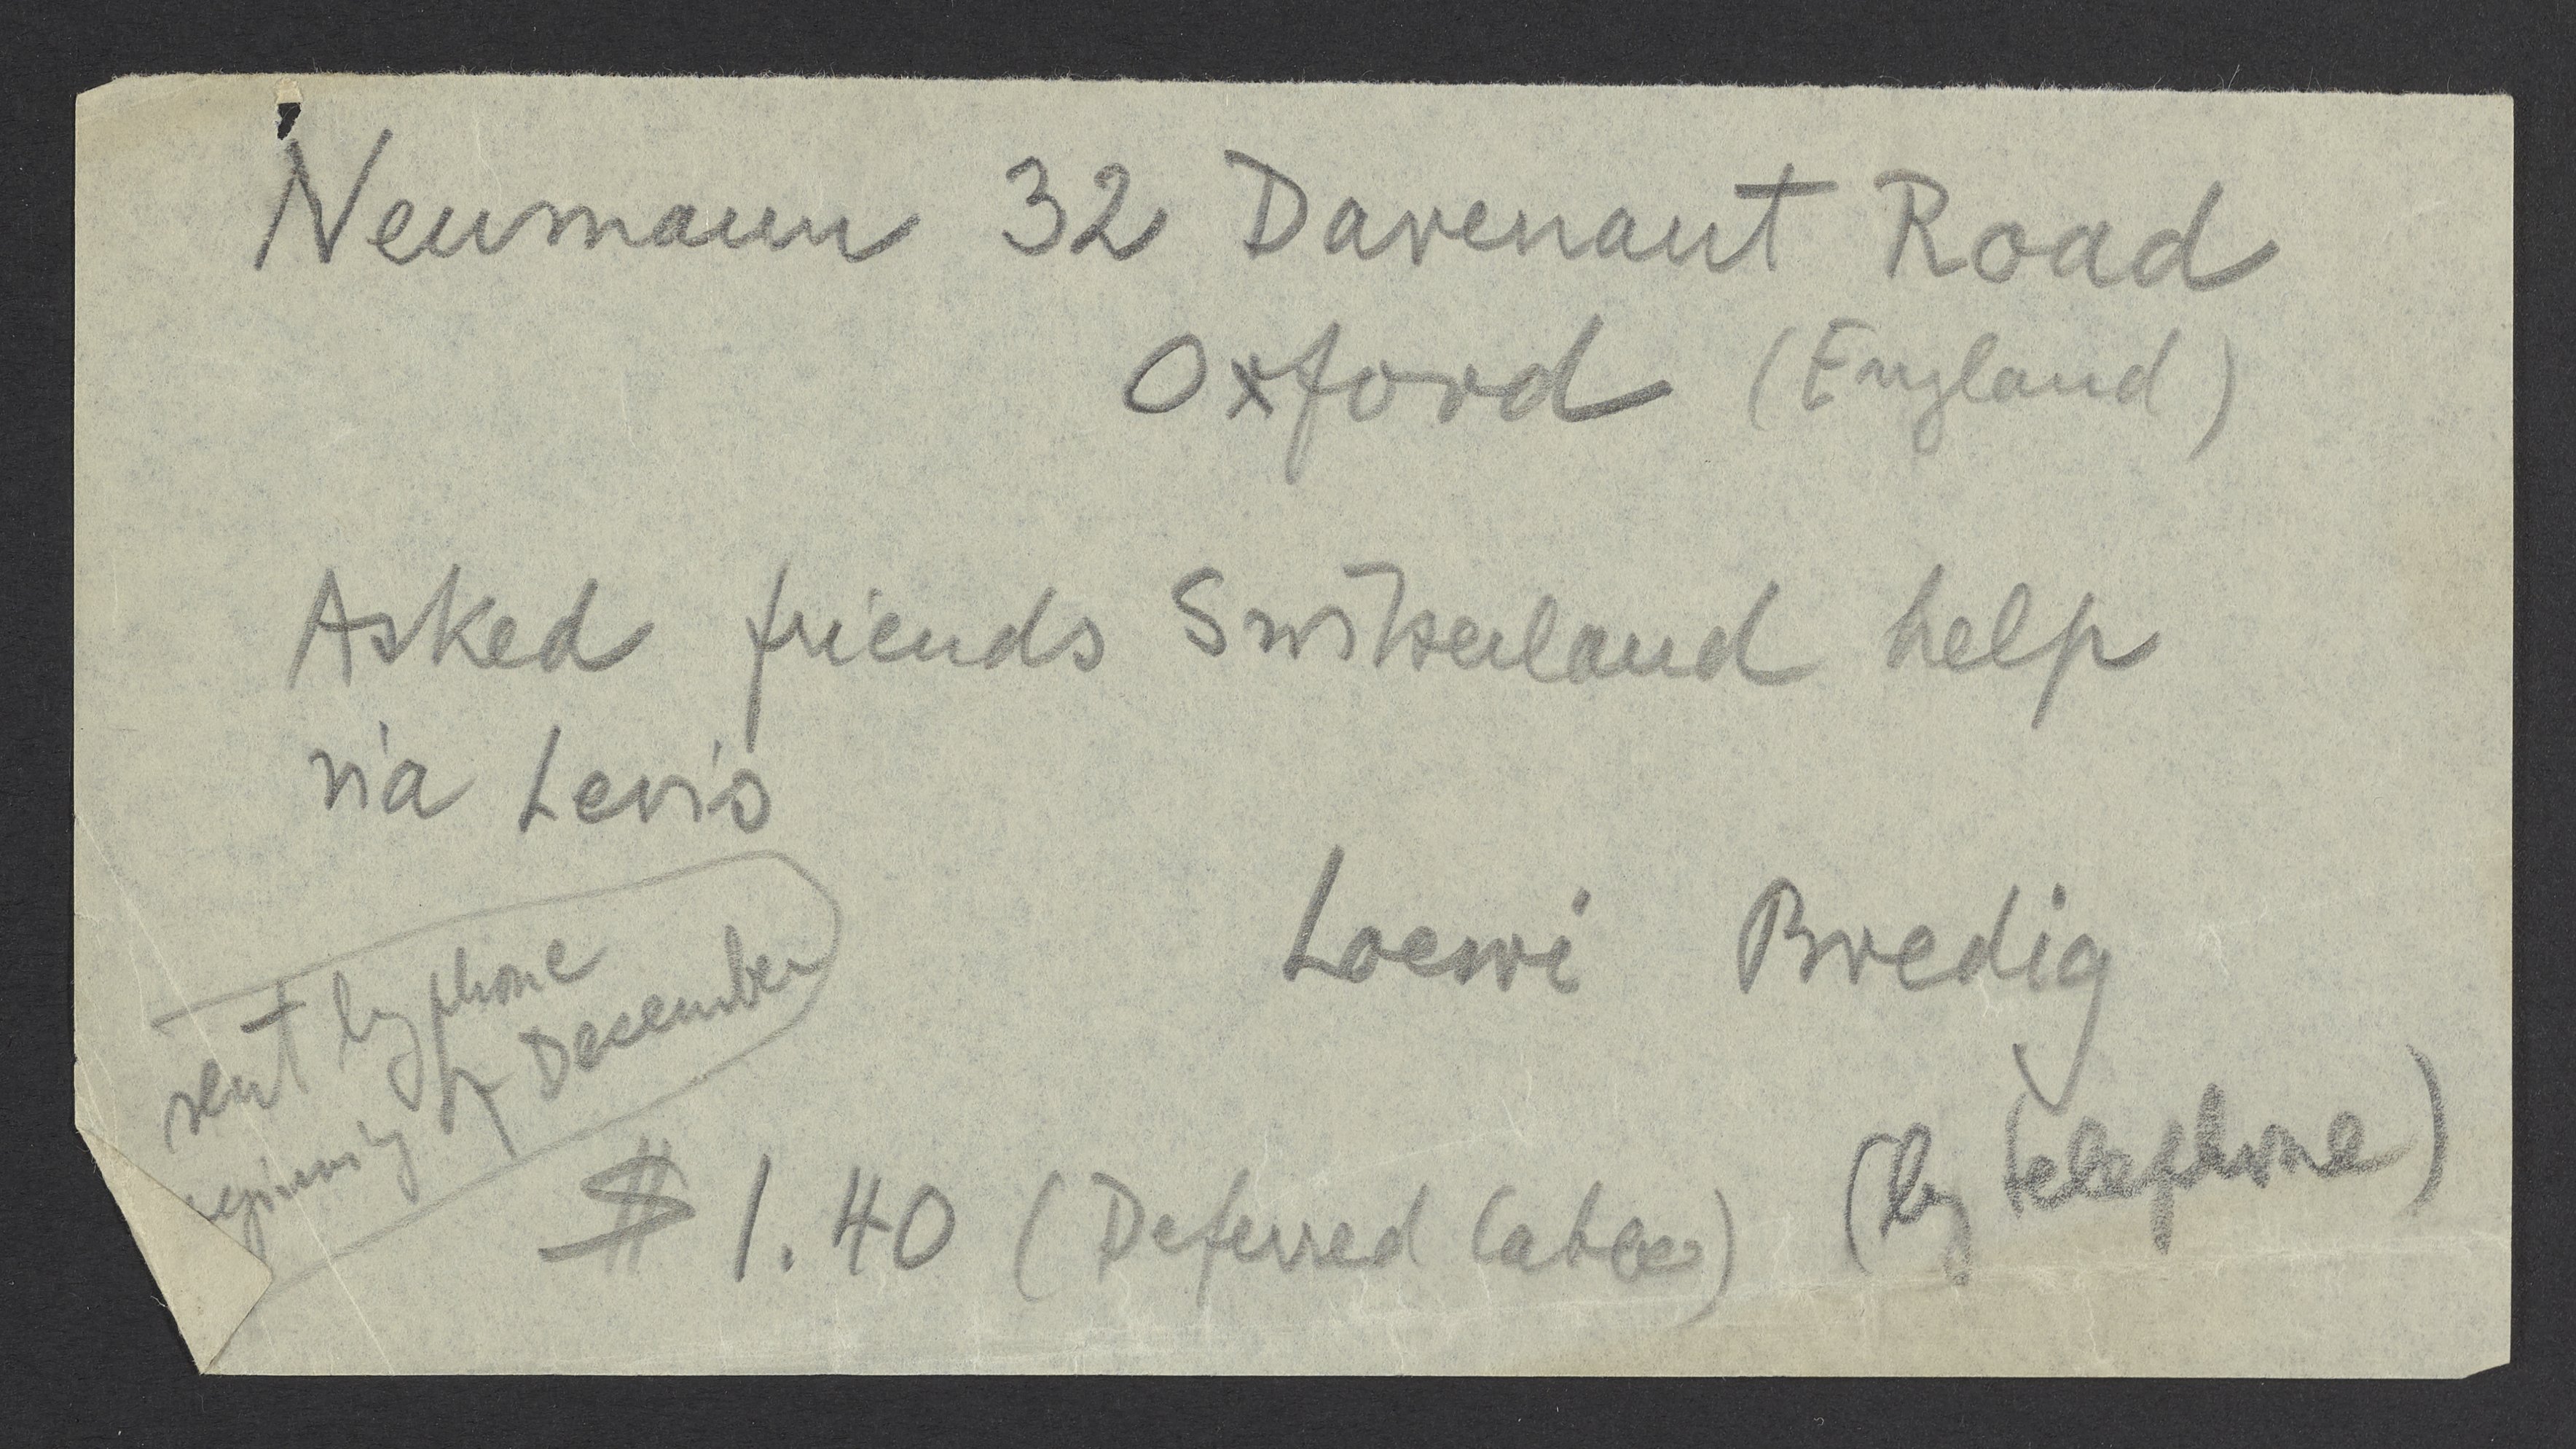 Neumann 32 Davenant Road
Oxford (England)
Asked friends Switzerland help
via Levis
Loewi Bredig
(by telephone)
sent by phone
December
$ 1.40 (Deferred Cable)